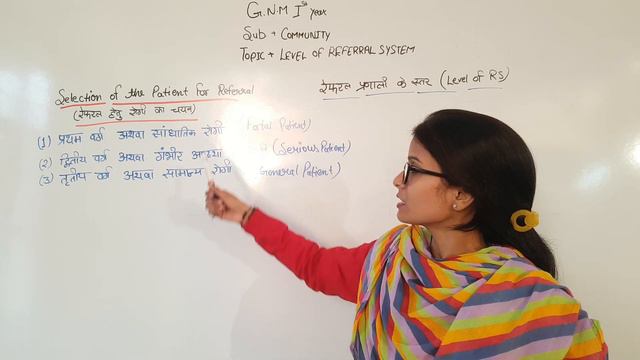 G.N.M Ist year
Sub → COMMUNITY
TOPIC → LEVEL OF REFERRAL SYSTEM
Selection of the Patient for Referral
(रेफरल हेतु रोगी का चयन)
(1) प्रथम वर्ग अथवा सांघातिक रोगी (Fatal Patient)
(2) द्वितीय वर्ग अथवा गंभीर (Serious Patient)
(3) तृतीय वर्ग अथवा सामान्य रोगी General Patient)
रेफरल प्रणाली के स्तर (Level of RS)